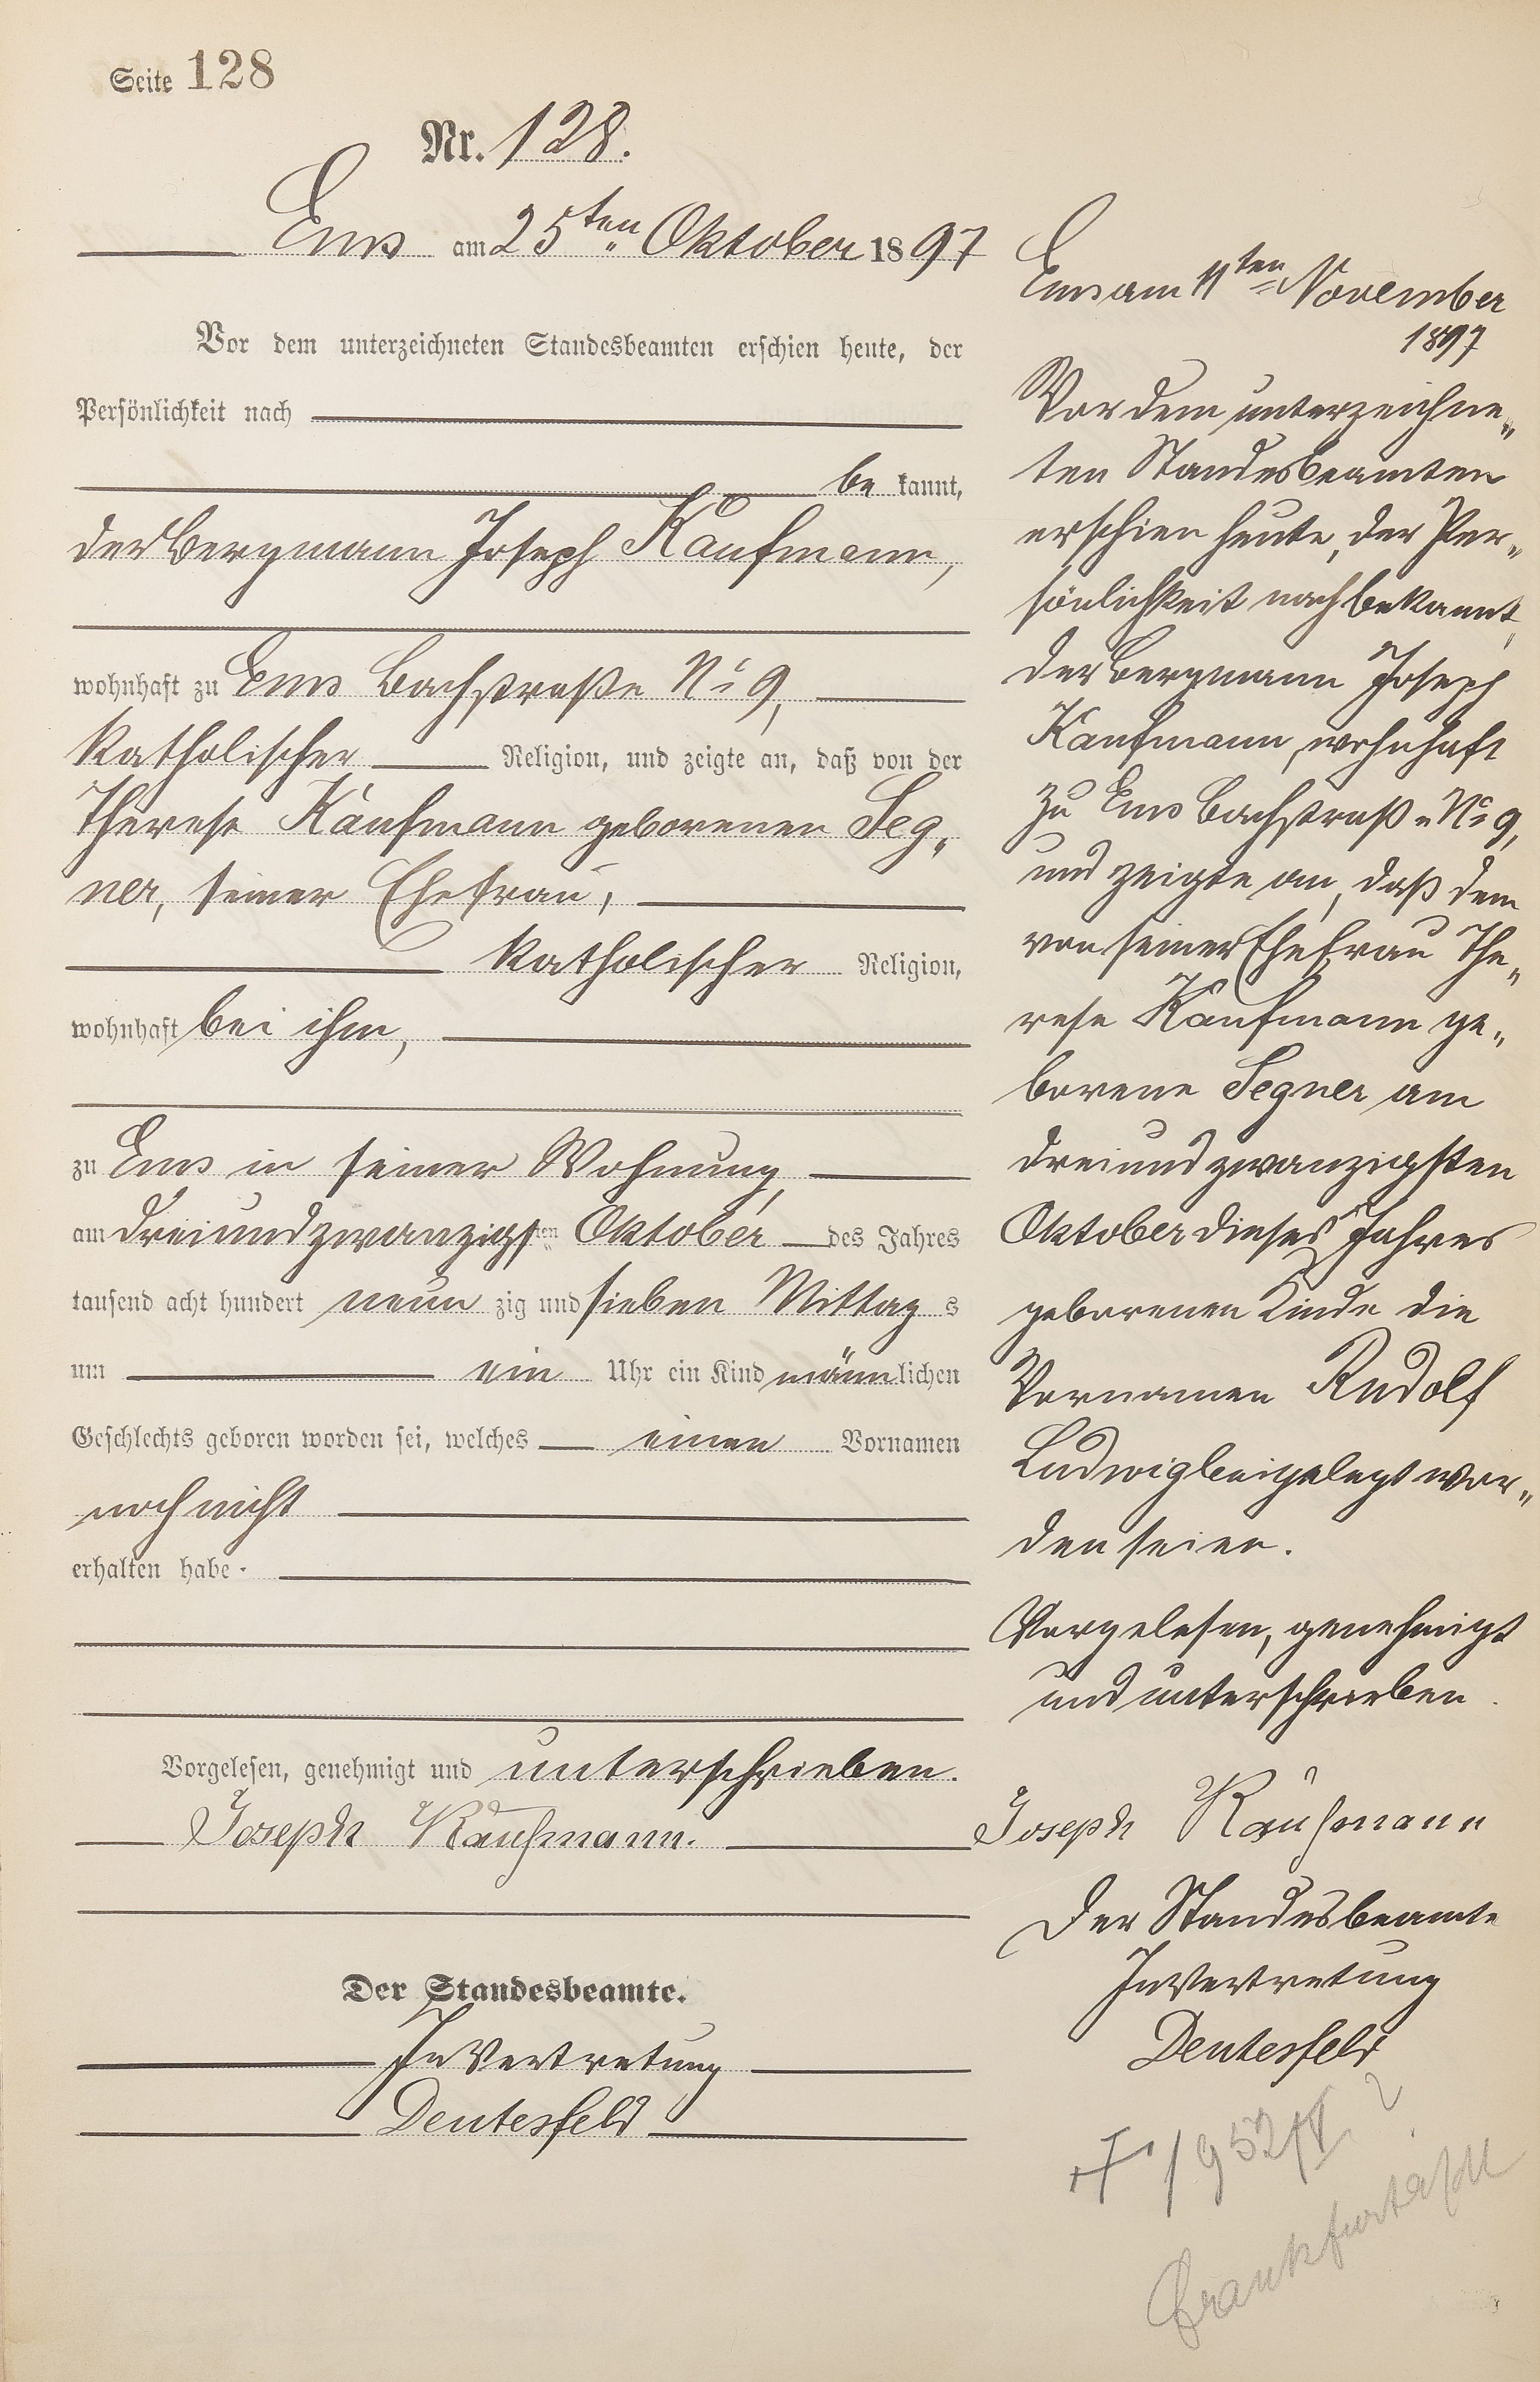 Seite 128
Nr. 128.
Ems am 25ten Oktober 1897
Vor dem unterzeichneten Standesbeamten erschien heute, der
Persönlichkeit nach
be kannt,
der Bergmann Joseph Kaufmann,
wohnhaft zu Ems Bachstraße No 9,
katholischer Religion, und zeigte an, daß von der
Therese Kaufmann geborenen Seg„
ner, seiner Ehefrau,
katholischer Religion,
wohnhaft bei ihm,
zu Ems in seiner Wohnung,
am dreiundzwanzigsten Oktober des Jahres
tausend acht hundert neun zig und sieben Mittag s
um ein Uhr ein Kind männlichen
Geschlechts geboren worden sei, welches einen Vornamen
noch nicht
erhalten habe.
Vorgelesen, genehmigt und unterschrieben.
Joseph Kaufmann.
Der Standesbeamte.
In Vertretung
Deutesfeld
Ems am 11ten November
1897
Vor dem unterzeichne„
ten Standesbeamten
erschien heute, der Per„
sönlichkeit nach bekannt,
der Bergmann Joseph
Kaufmann, wohnhaft
zu Ems Bachstraße No 9,
und zeigte an, daß dem
von seiner Ehefrau The„
rese Kaufmann ge„
borene Segner am
dreiundzwanzigsten
Oktober dieses Jahres
geborenen Kinde die
Vornamen Rudolf
Ludwig beigelegt wor„
den seien.
Vorgelesen, genehmigt
und unterschrieben.
Joseph Kaufmann
Der Standesbeamte
In Vertretung
Deutesfeld
1952/V
Frankfurt a/M